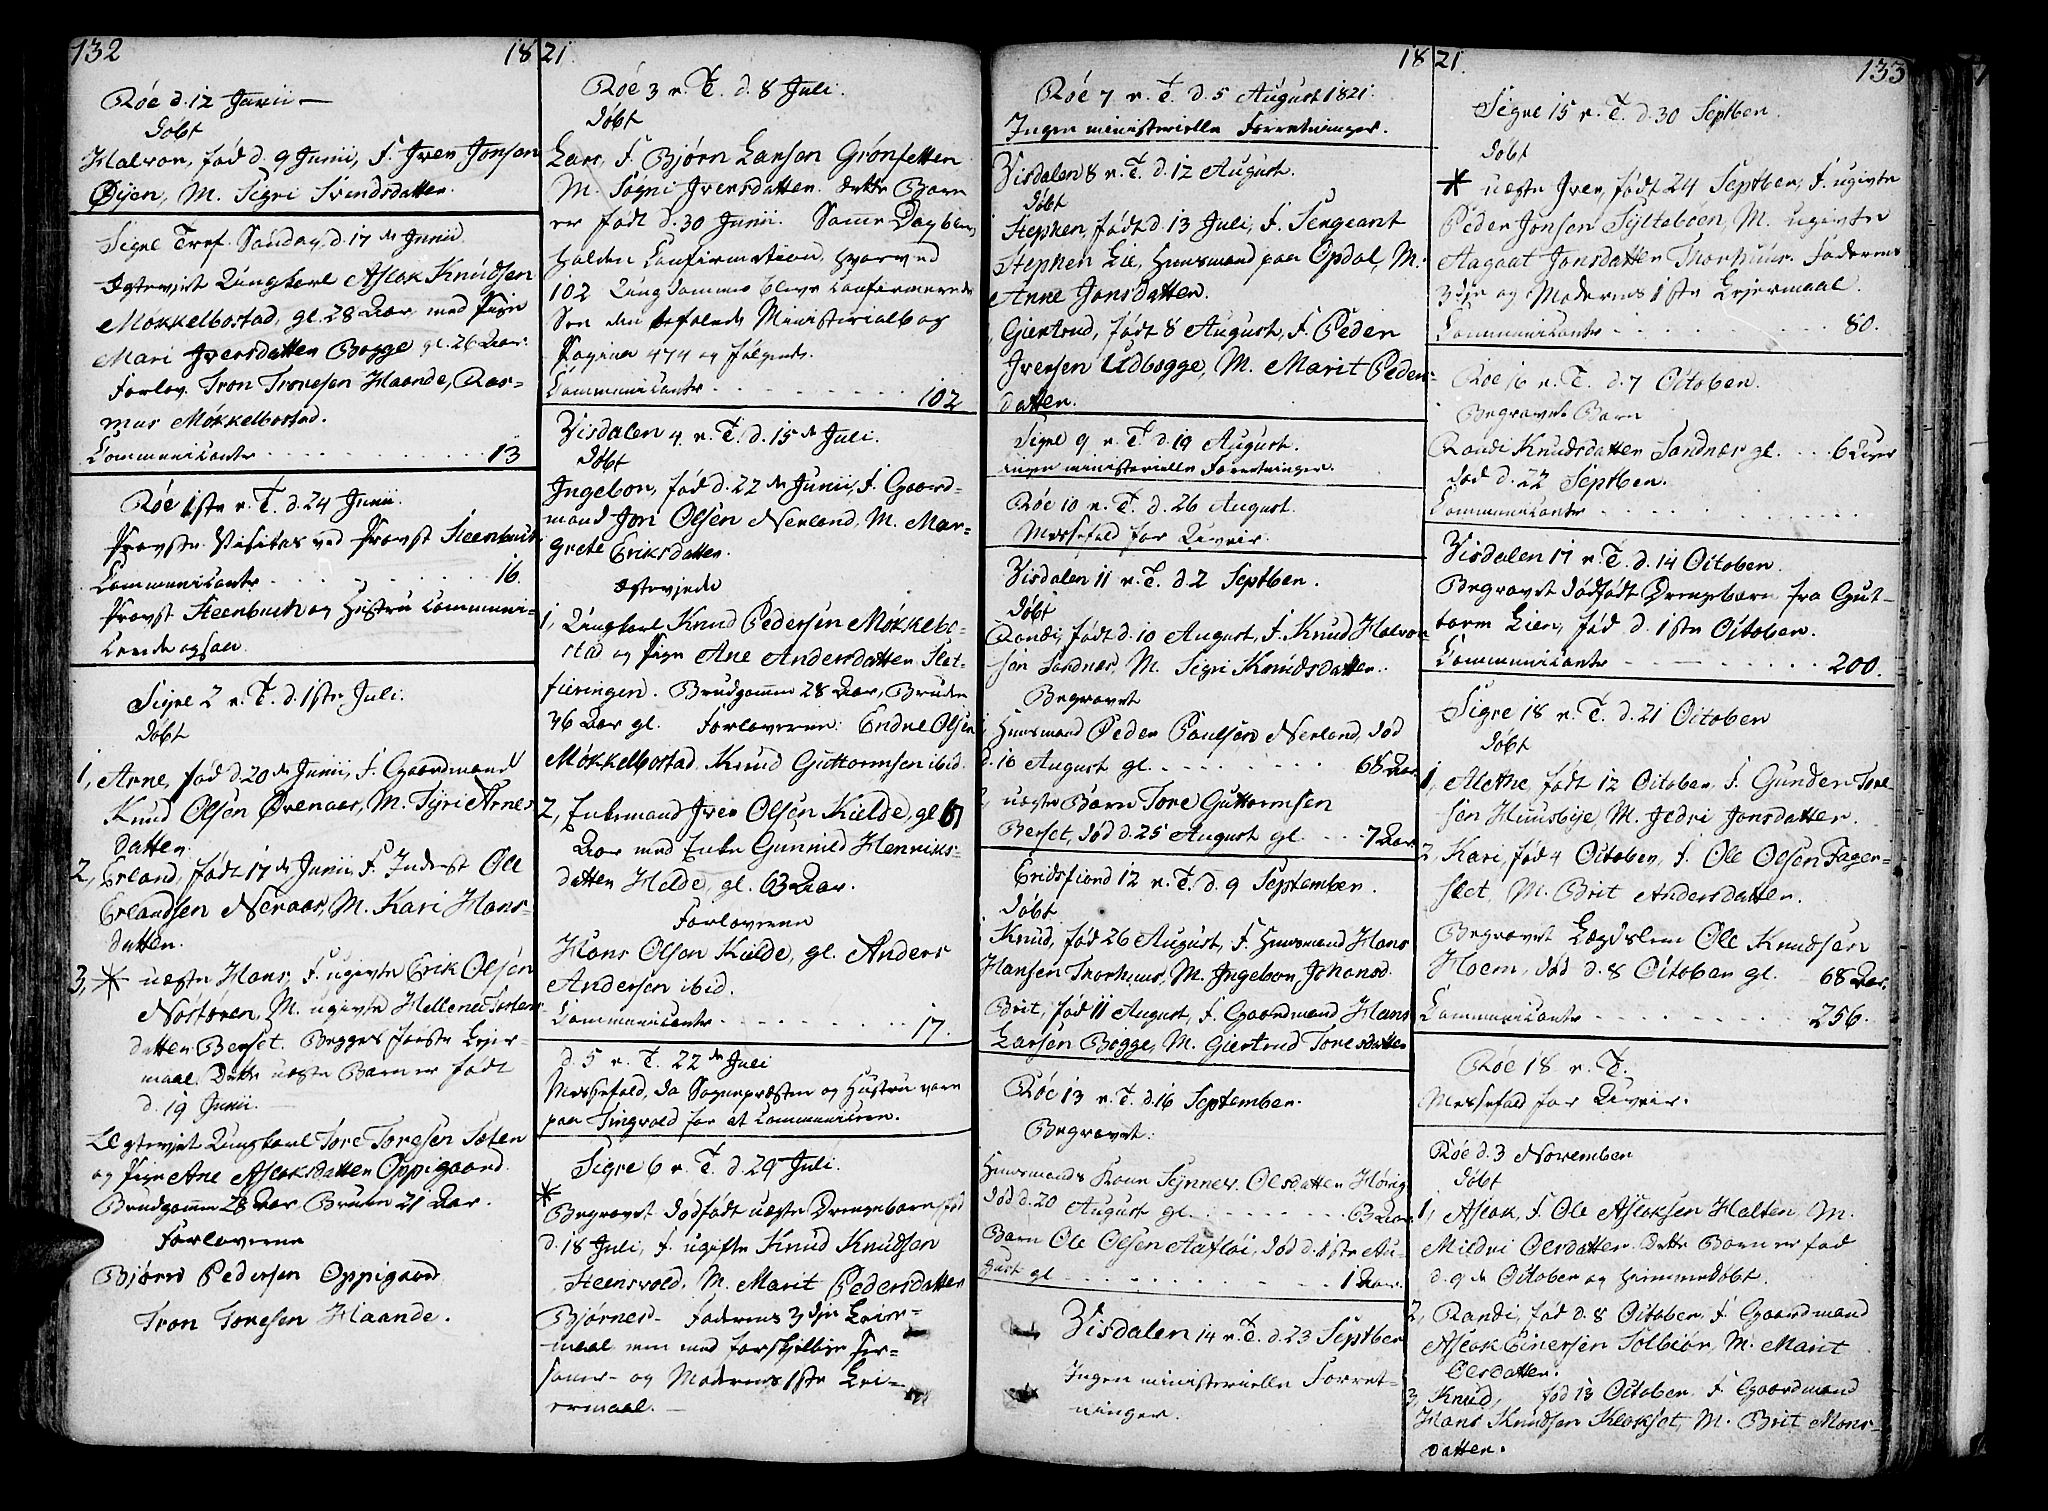 132
1821
Röe d. 12 Junii
döbt
Halvor, fød d. 9 Junii, F. Iver Jonsen
Öijen, M. Sigri Svendsdatter.
Sigre Tref. Söndag d. 17de Junii
Egteviet Ungkarl Aslak Knudsen
Mökkelbostad, gl. 28 Aar, med Pige
Mari Iversdatter Bogge gl. 26 Aar.
Forlov. Tron Tronesen Haande, Ras-
mus Mökkelbostad.
Communicantr 13
Röe 1ste n. T. d. 24 Junii.
Provste Visitas ved Provst Steenbuch
Communicantr 16.
Provst Steenbuch og Hustru communi-
cerede ogsaa.
Sigre 2 n. T. d. 1ste Juli.
döbt
1, Arne, fød d. 20de Junii, F. Gaardmand
Knud Olsen Övenaas, M. Syri Arnes
datter.
2, Erland, født 17de Junii, F. Inderst Ole
Erlandsen Neraas, M. Kari Hans-
datter.
3, * uægte Hans, F. ugivte Erik Olsen
Nostöven, M. ugivte Hellena Torstens
datter Berset. Begges første Leier-
maal. Dette uægte Barn er født
d. 19 Junii.
Egteviet Ungkarl Tore Toresen Sæter
og Pige Ane Aslaksdatter Oppigaard.
Brudgomm 28 Aar Bruden 21 Aar.
Forloverne
Bjørn Pedersen Oppigaard
Tron Toresen Haande.
Röe 3 n. T. d. 8 Juli.
döbt
Lars, F. Bjørn Larsen Grönsetter
M. Sögni Iversdatter. dette Barn
er født d. 30 Junii. Samme Dag blev
holden Confirmation, hvorved
102 Ungdomme bleve confirmerede
See den befalede Ministerialbog
Pagina 474 og følgende.
Communicantr 102
Visdalen 4 n. T. d. 15de Juli.
döbt
Ingebor, fød d. 22de Junii, F. Gaard-
mand Jon Olsen Nerland, M. Mar-
grete Eriksdatter.
Egteviede
1, Ungkarl Knud Pedersen Mökkelbo-
stad og Pige Ane Andersdatter Slet-
fieringen. Brudgommen 28 Aar, Bruden
36 Aar gl. Forloverne: Endre Olsen
Mökkelbostad, Knud Guttormsen ibid.
2, Enkemand Iver Olsen Kielde, gl. 61
Aar med Enke Gunnild Henriks-
datter Helde, gl. 63 Aar.
Forloverne
Hans Olsen Kielde, gl. Anders
Andersen ibid.
Communicantr 17.
d. 5 n. T. 22de Juli
Messefald, da Sognepræsten og Hustru vare
paa Tingvold for at communicere.
Sigre 6 n. T. d. 29 Juli.
*
Begravet dødfødt uægte Drengebarn fød
d. 18 Juli, F. ugifte Knud Knudsen
Steensvold, M. Marit Pedersdatter
Bjørnes. Faderens 3die Leier-
maal men med forskjellige Per-
soner og Moderens 1ste Lei-
ermaal.
1821.
133
Röe 7 n. T. d. 5 August 1821.
Ingen ministerielle Forretninger.
Visdalen 8 n. T. d. 12 August.
döbt
Stephen, født d. 13 Juli, F. Sergeant
Stephen Lie, Huusmand paa Opdal, M.
Anne Jonsdatter.
Giertrud, født 8 August, F. Peder
Iversen Udbogge, M. Marit Peders-
datter.
Sigre 9 n. T. d. 19 August.
ingen ministerielle Forretninger.
Röe 10 n. T. d. 26 August.
Messefald for Uveir.
Visdalen 11 n. T. d. 2 Septber.
döbt
Randi, født d. 10 August, F. Knud Halvor-
sen Sandnes, M. Sigri Knudsdatter.
Begravet
1, Huusmand Peder Poulsen Nerland, død
d. 16 August gl. 68 Aar
2, uægte Barn Tore Guttormsen
Berset, død d. 25 August gl. 7 Aar.
Eridsfiord 12 n. T. d. 9 September.
döbt
Knud, fød 26 August, F. Huusmand Hans
Hansen Torhuus, M. Ingebor Johansd.
Brit, fød 11 August, F. Gaardmand Hans
Larsen Bogge, M. Giertrud Toresdatter
Röe 13 n. T. d. 16 September.
Begravet:
Huusmands Kone Synnev Olsdatter Hövig
død d. 20 August gl. 63 Aar
Barn Ole Olsen Aaflöi, død d. 1ste Au-
gust gl 1 Aar.
Visdalen 14 n. T. d. 23 Septber
Ingen ministerielle Forret-
ninger.
Sigre 15 n. T. d. 30 Septber.
döbt
* uægte Iver, født 24 Septber, F. ugivte
Peder Jonsen Syltebøen, M. ugivte
Aagaat Jonsdatter Thorhuus. Faderens
3die og Moderens 1ste Leiermaal.
Communicantr 80.
Röe 16 n. T. d. 7 October.
Begravet Barn
Randi Knudsdatter Sandnes gl. 6 Uger
død d. 22 Septber.
Communicantr
Visdalen 17 n. T. d. 14 October.
Begravet dødfødt Drengebarn fra Gut-
torm Lien, fød d. 1ste October.
Communicantr 200.
Sigre 18 n. T. d. 21 October
döbt
1, Alethe, født 12 October, F. Gunder Tore-
sen Huusbye, M. Jedri Jonsdatter.
2, Kari, fød 4 October, F. Ole Olsen Fager-
slet, M. Brit Andersdatter.
Begravet Lægdslem Ole Knudsen
Hoem, død d. 8 October gl. 68 Aar.
Communicantr 256.
Röe 18 n. T.
Messefald for Uveir.
Röe d. 3 November
döbt
1, Aslak, F. Ole Aslaksen Halten, M.
Mildri Olsdatter. Dette Barn er fød
d. 9de October og hjemmedøbt.
2, Randi, fød d. 8 October, F. Gaardmand
Aslak Einersen Solbiör, M. Marit
Olsdatter.
3, Knud, fød 13 October, F. Gaardmand
Hans Knudsen Kloksæt, M. Brit Mons-
datter.